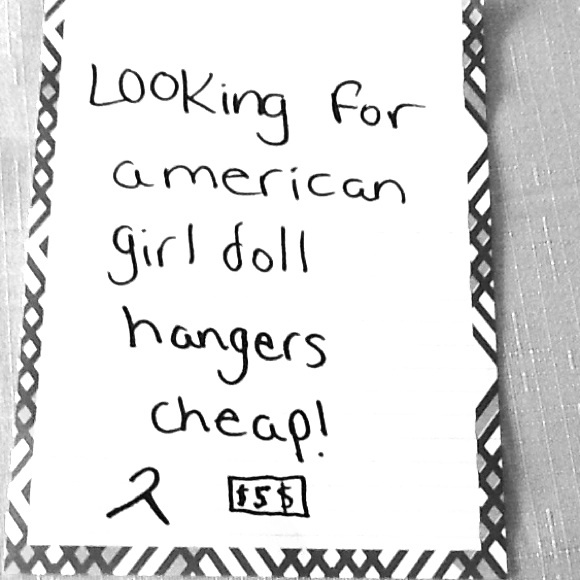 Looking for
american
girl doll
hangers
cheap!
$5$